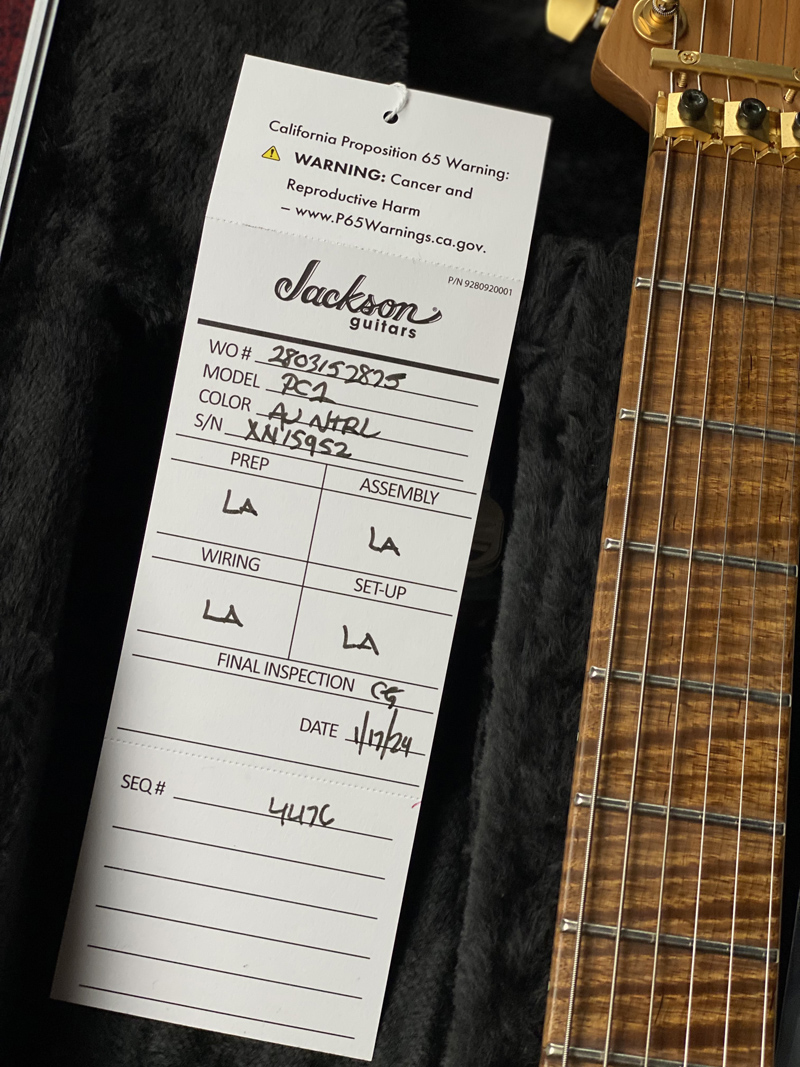 California Proposition 65 Warning:
WARNING: Cancer and
Reproductive Harm
– www.P65Warnings.ca.gov.
Jackson
guitars
P/N 9280920001
WO # 2803152825
MODEL PC1
COLOR AU NTRL
S/N XN15952
PREP
ASSEMBLY
LA
LA
WIRING
SET-UP
LA
LA
FINAL INSPECTION CG
DATE 1/17/24
SEQ # 4476